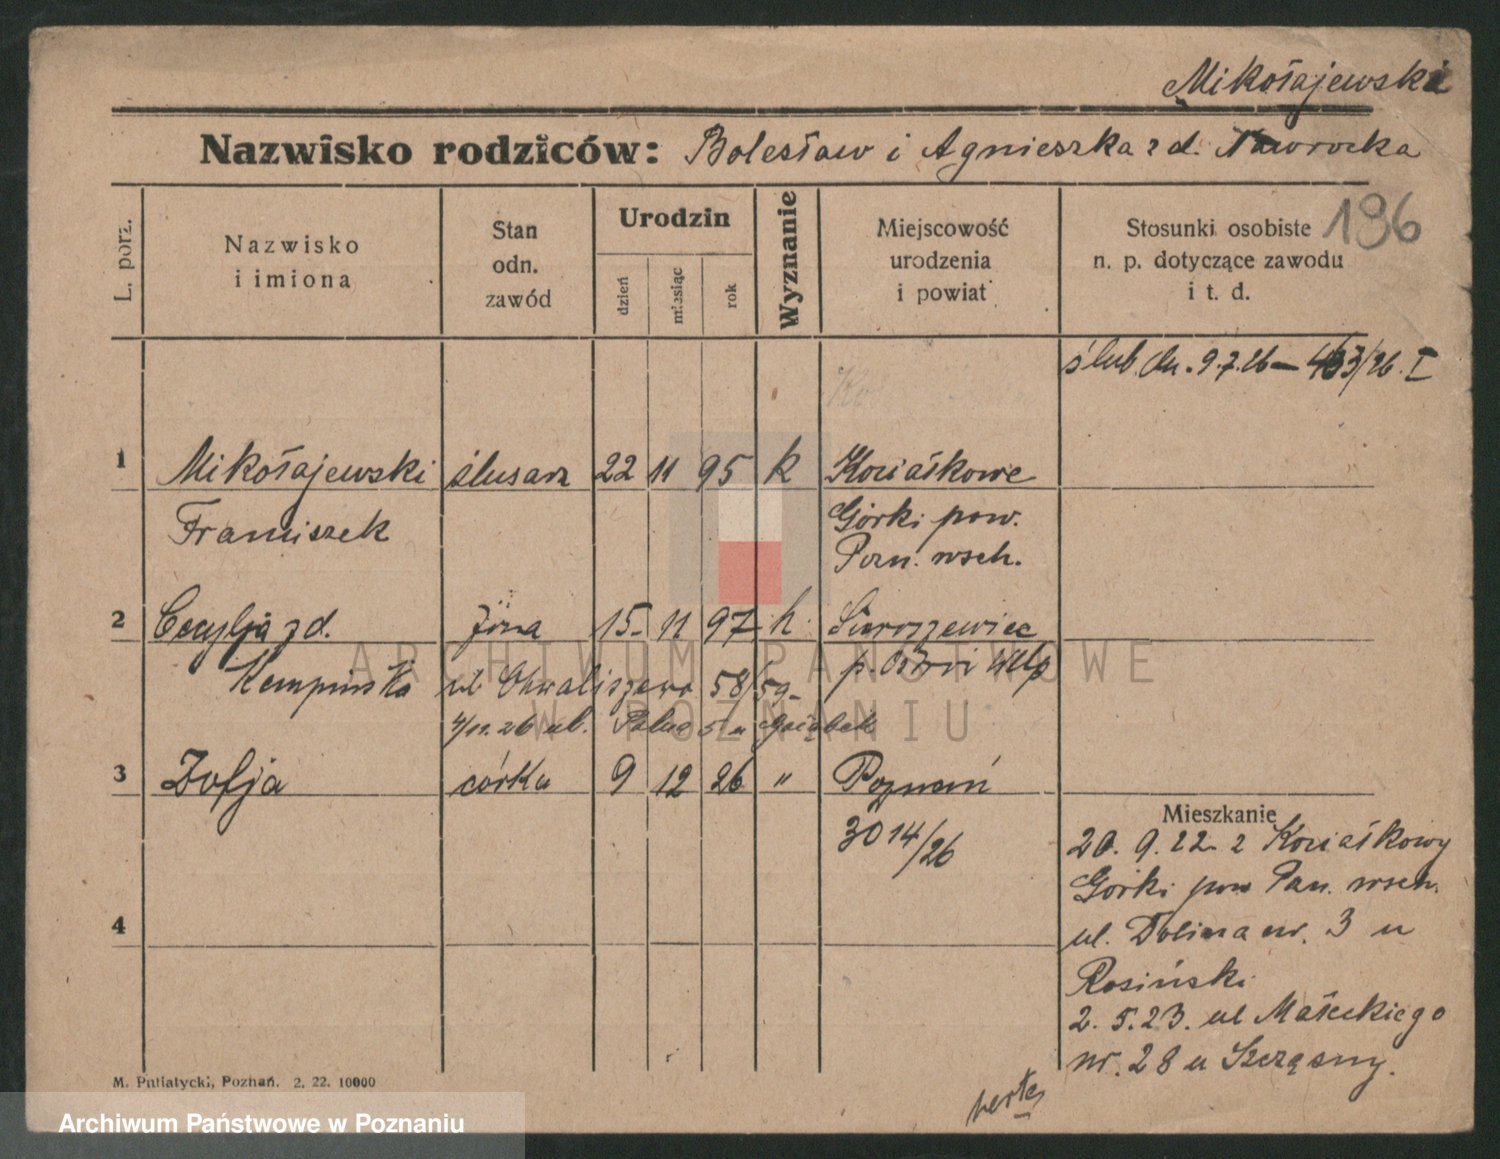 Mikołajewski
Nazwisko rodziców: Bolesław i Agnieszka z d. Nawrocka
196
L. porz.
Nazwisko
i imiona
Stan
odn.
zawód
Urodzin
dzień
miesiąc
rok
Wyznanie
Miejscowość
urodzenia
i powiat
Stosunki osobiste
n. p. dotyczące zawodu
i t. d.
ślub dn. 9.7.26 — 463/26. I
1 Mikołajewski ślusarz 22 11 95 k Koziałkowe
Franciszek Górki pow.
Pozn. wsch.
2 Cecylja z d. żona 15 11 97 k.
Kempińska ul Chwaliszewo 58/59
4/11.26 ul. Polna 5 u
3 Zofja córka 9 12 26 " Poznań
3014/26
Mieszkanie
20. 9. 22 z Koziałkowy
Górki pow Pozn. wsch.
ul. Dolina nr. 3 u
Rosiński
2. 5. 23. ul Małeckiego
nr. 28 u Szczęsny.
4
M. Putiatycki, Poznań. 2. 22. 10000
ARCHIWUM PAŃSTWOWE
W POZNANIU
Archiwum Państwowe w Poznaniu